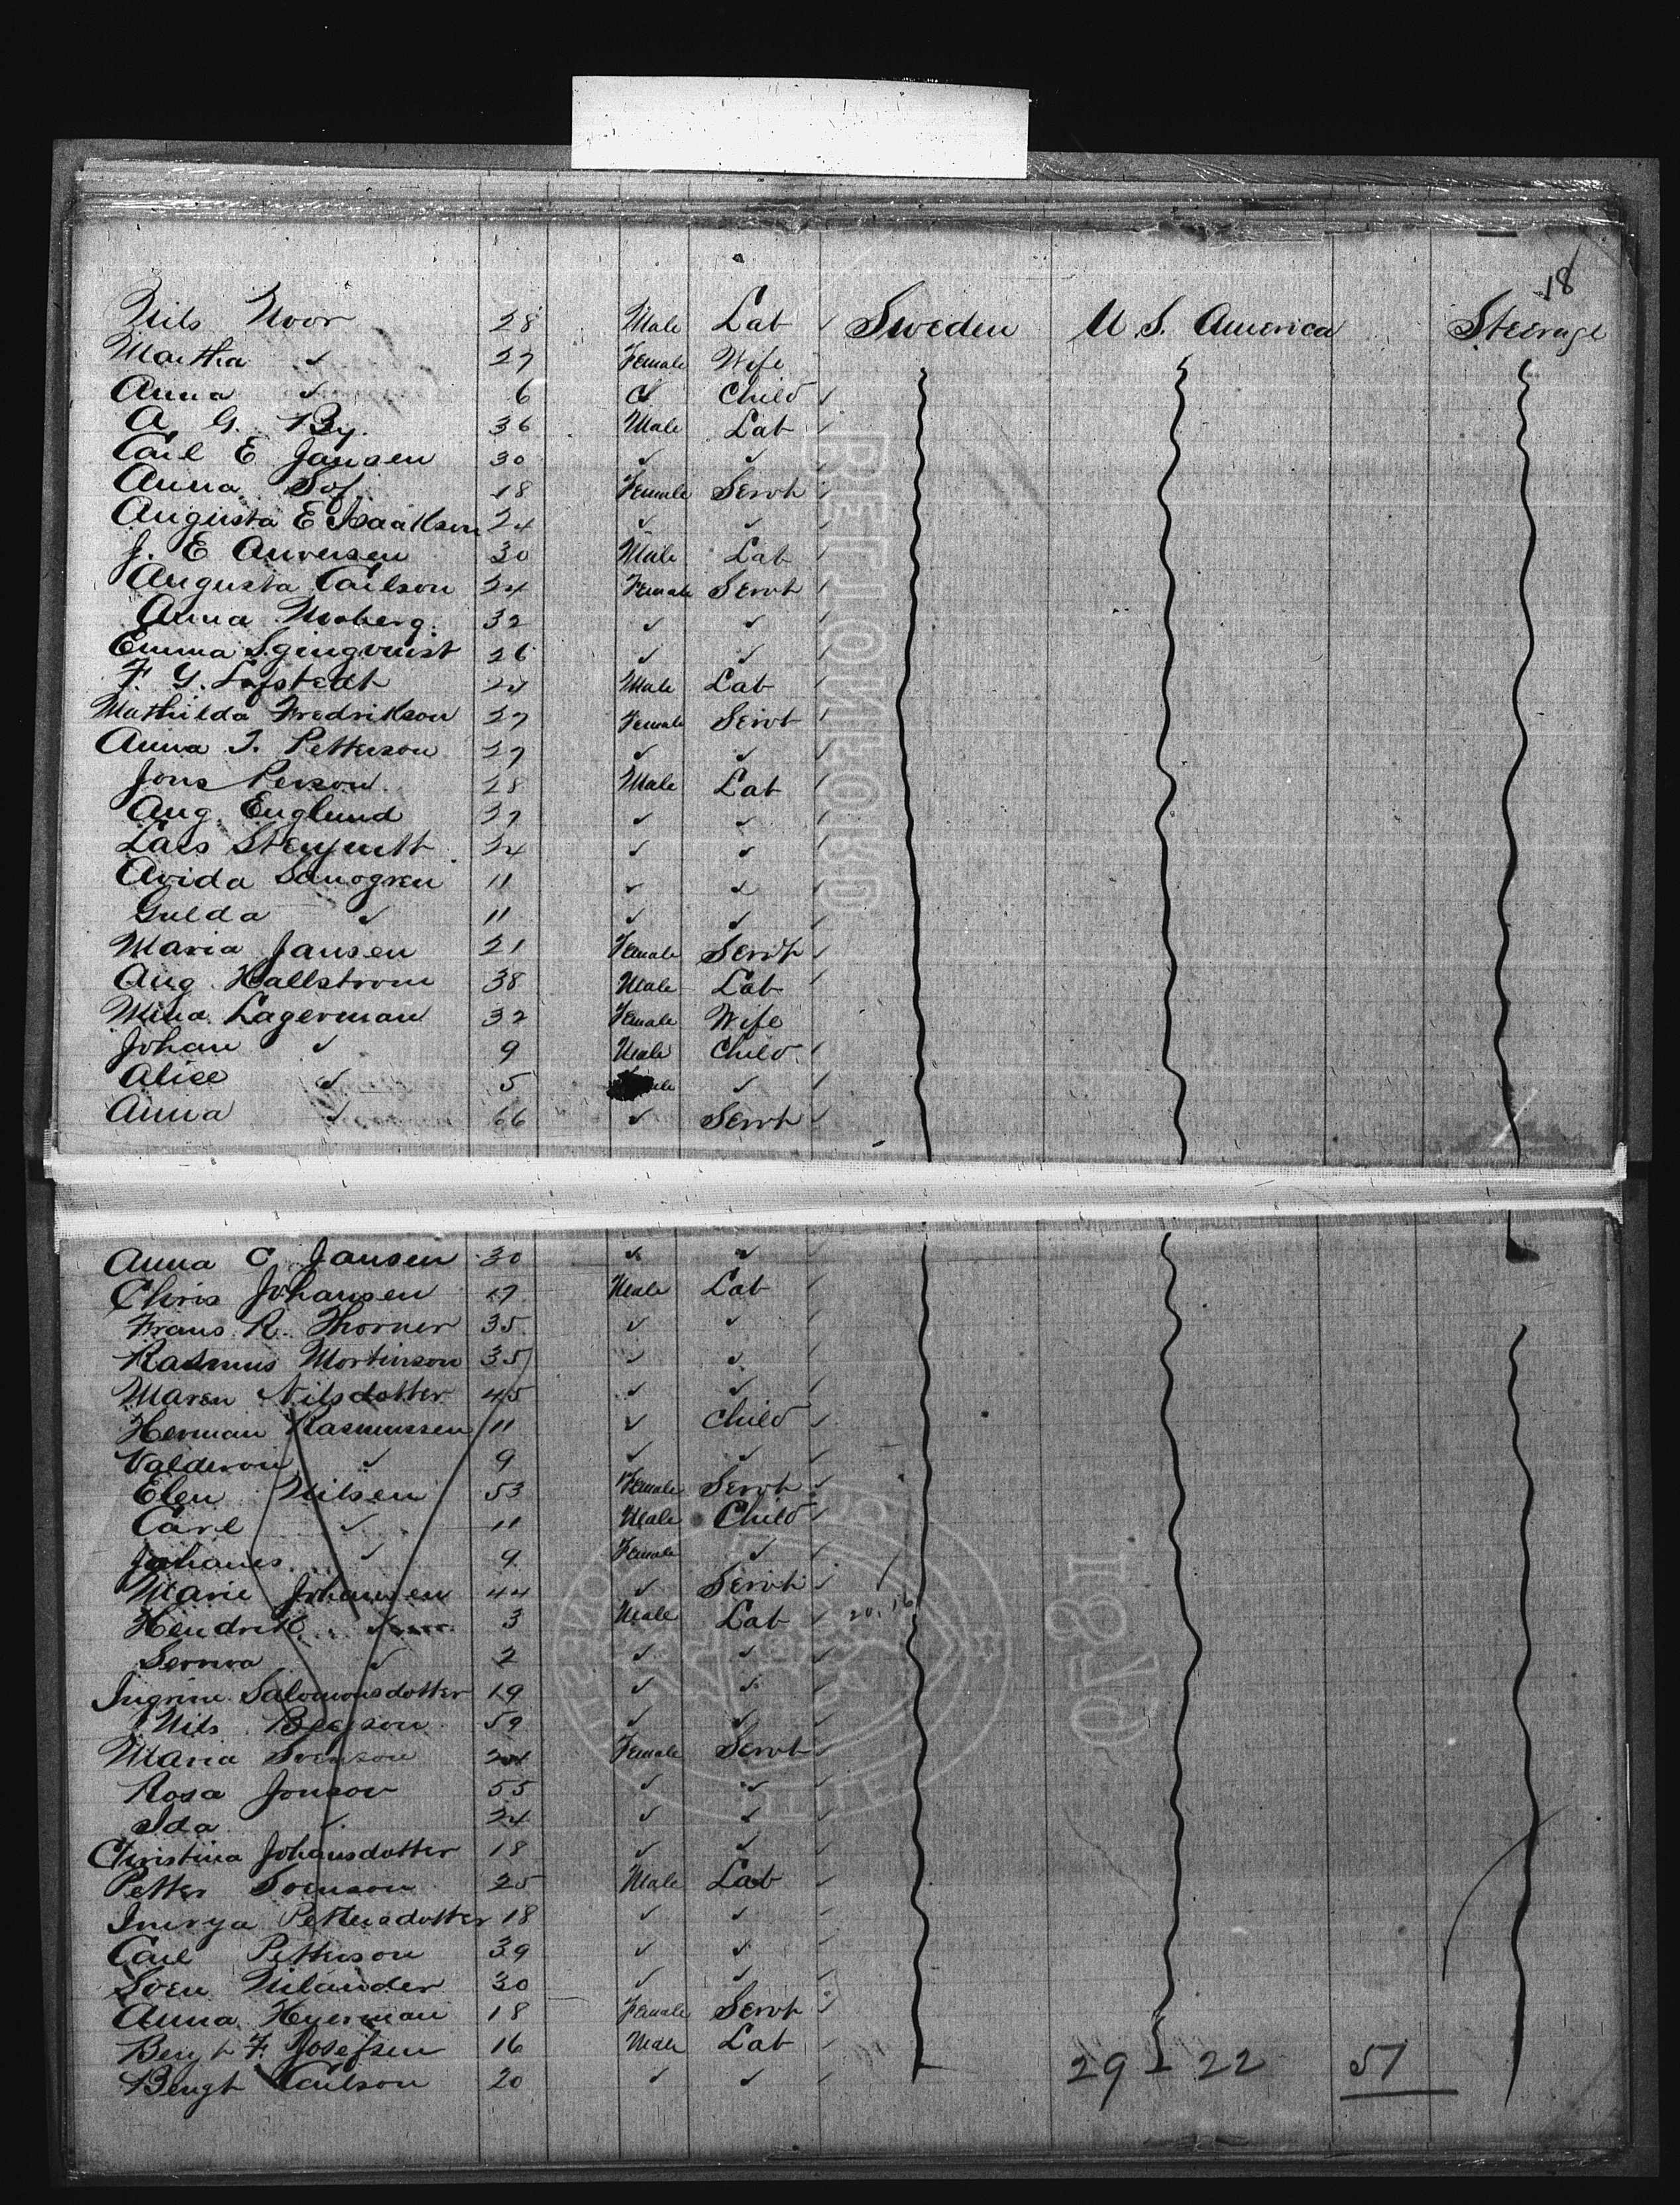 18
Nils Noor 28 Male Lab ✓ Sweden U S. America Steerage
Martha ✓ 27 Female Wife
Anna ✓ 6 ✓ Child ✓
A. G. By. 36 Male Lab
Carl E Jansen 30 ✓ ✓
Anna Sof 18 Female Servt
Augusta E Isaakson 24 ✓ ✓
J. E 30 Male Lab
Augusta Carlson 24 Female Servt
Anna Moberg. 32 ✓ ✓
Emma 26 ✓ ✓
F. G. Lofstedt 24 Male Lab
Mathilda Fredrikson 27 Female Servt
Anna J. Petterson 27 ✓ ✓
Jons Person 28 Male Lab
Aug. Englund 37 ✓ ✓
Lars 24 ✓ ✓
Avida 11 ✓ ✓
Gulda ✓ 11 ✓ ✓
Maria Jansen 21 Female Servt
Aug. Hallstrom 38 Male Lab
Mina Lagerman 32 Female Wife
Johan ✓ 9 Male Child
Alice ✓ 5 ✓
Anna ✓ 66 ✓ Servt
Anna C Jansen 30 ✓ ✓
Chris Johansen 17 Male Lab
Frans R. Thorner 35 ✓ ✓
Rasmus Mortinson 35 ✓ ✓
Maren Nilsdotter 45 ✓ ✓
Herman Rasmussen 11 ✓ Child
✓ 9 ✓ ✓
Elen Nilsen 53 Female Servt
Carl ✓ 11 Male Child
Johanes ✓ 9 Female ✓
Marie Johansen 44 ✓ Servt
Hendrik ✓ 3 Male Lab
✓ 2 ✓ ✓
Salomonsdotter 19 ✓ ✓
Nils 59 ✓ ✓
Maria Svenson 24 Female Servt
Rosa Jonson 55 ✓ ✓
Ida ✓ 24 ✓ ✓
Christina Johansdotter 18 ✓ ✓
Petter Svenson 25 Male Lab
Pettersdotter 18 ✓ ✓
Carl Petterson 39 ✓ ✓
Sven Nilander 30 ✓ ✓
Anna Hyerman 18 Female Servt
Bengt F. Josefsen 16 Male Lab
Bengt Carlson 20 ✓ ✓ 29 22 51